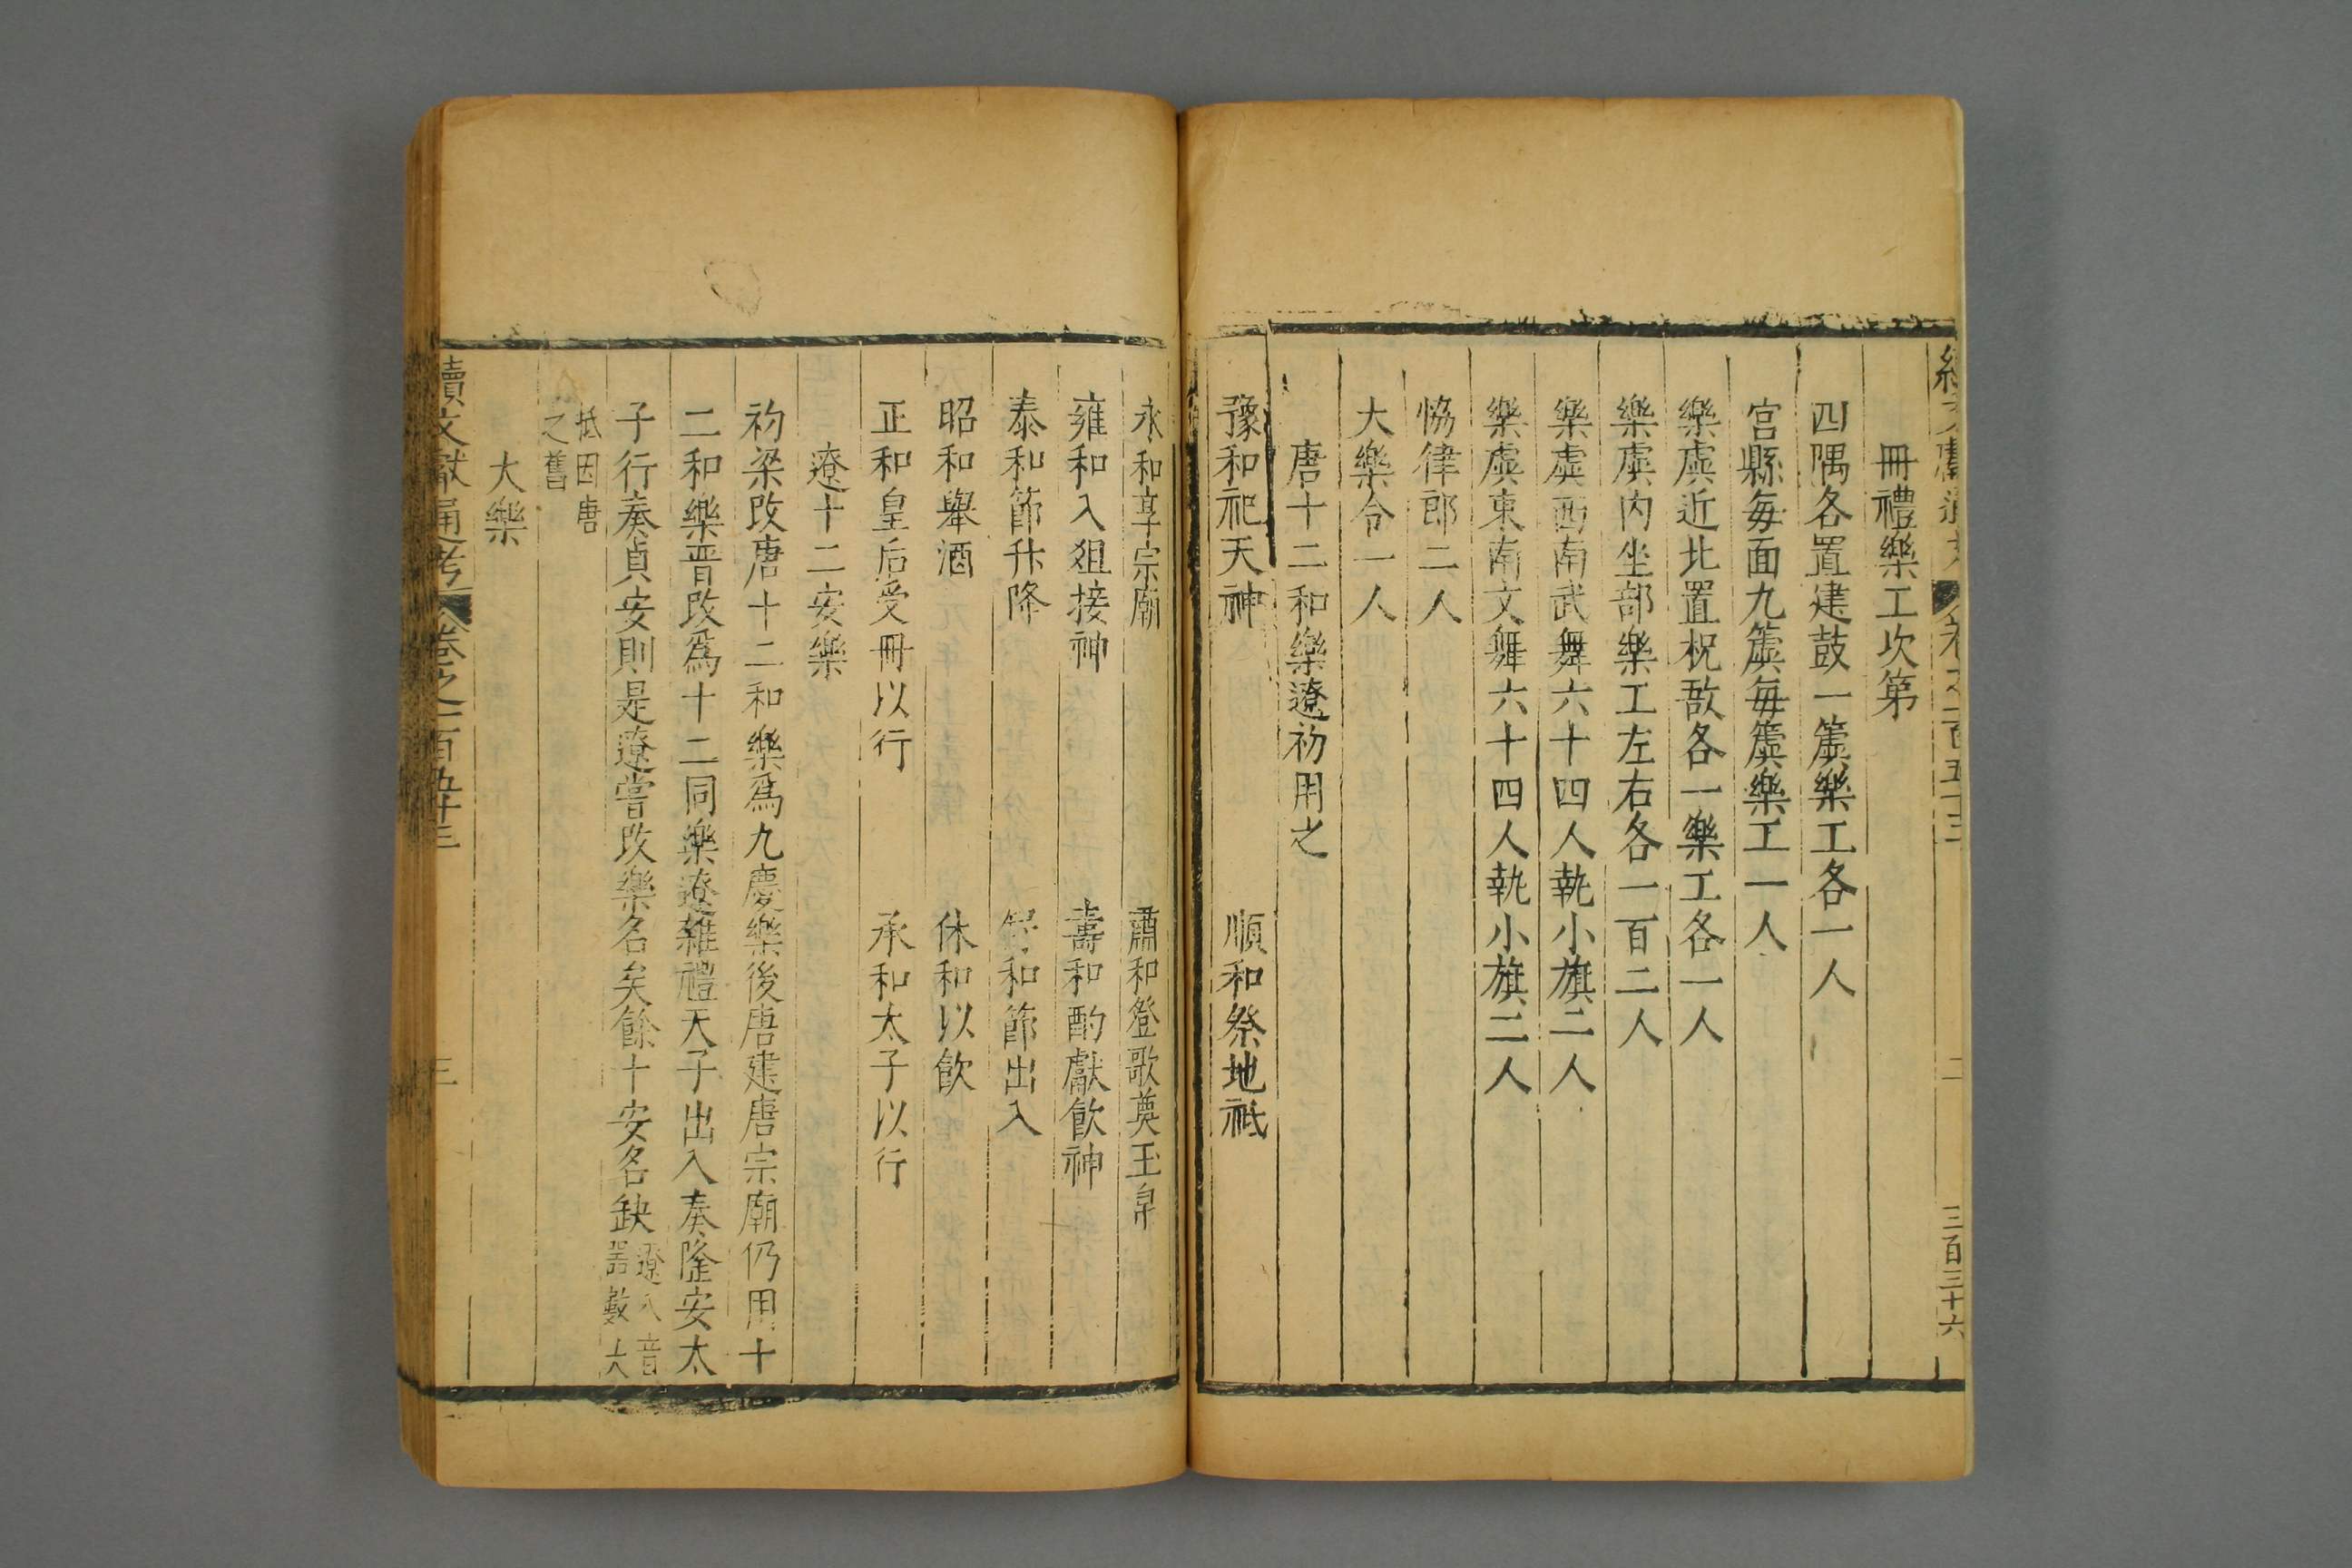 卷之二百五十三
二
三百三十六
冊禮樂工次第
四隅各置建鼓一簴樂工各一人
宮縣每面九簴每簴樂工一人
樂虡近北置柷敔各一樂工各一人
樂虡內坐部樂工左右各一百二人
樂虡西南武舞六十四人執小旗二人
樂虡東南文舞六十四人執小旗二人
恊律郎二人
大樂令一人
唐十二和樂遼初用之
豫和祀天神 順和祭地祇
永和享宗廟 肅和登歌奠玉帛
雍和入俎接神 壽和酌獻飮神
泰和節升降 和節出入
昭和舉酒 休和以飮
正和皇后受冊以行 承和太子以行
遼十二安樂
初梁改唐十二和樂爲九慶樂後唐建唐宗廟仍用十
二和樂晋改爲十二同樂遼雜禮天子出入奏隆安太
子行奏貞安則是遼嘗改樂名矣餘十安名缺遼八音
器數大
抵因唐
之舊
大樂
續文獻通考
卷之二百五十三
三